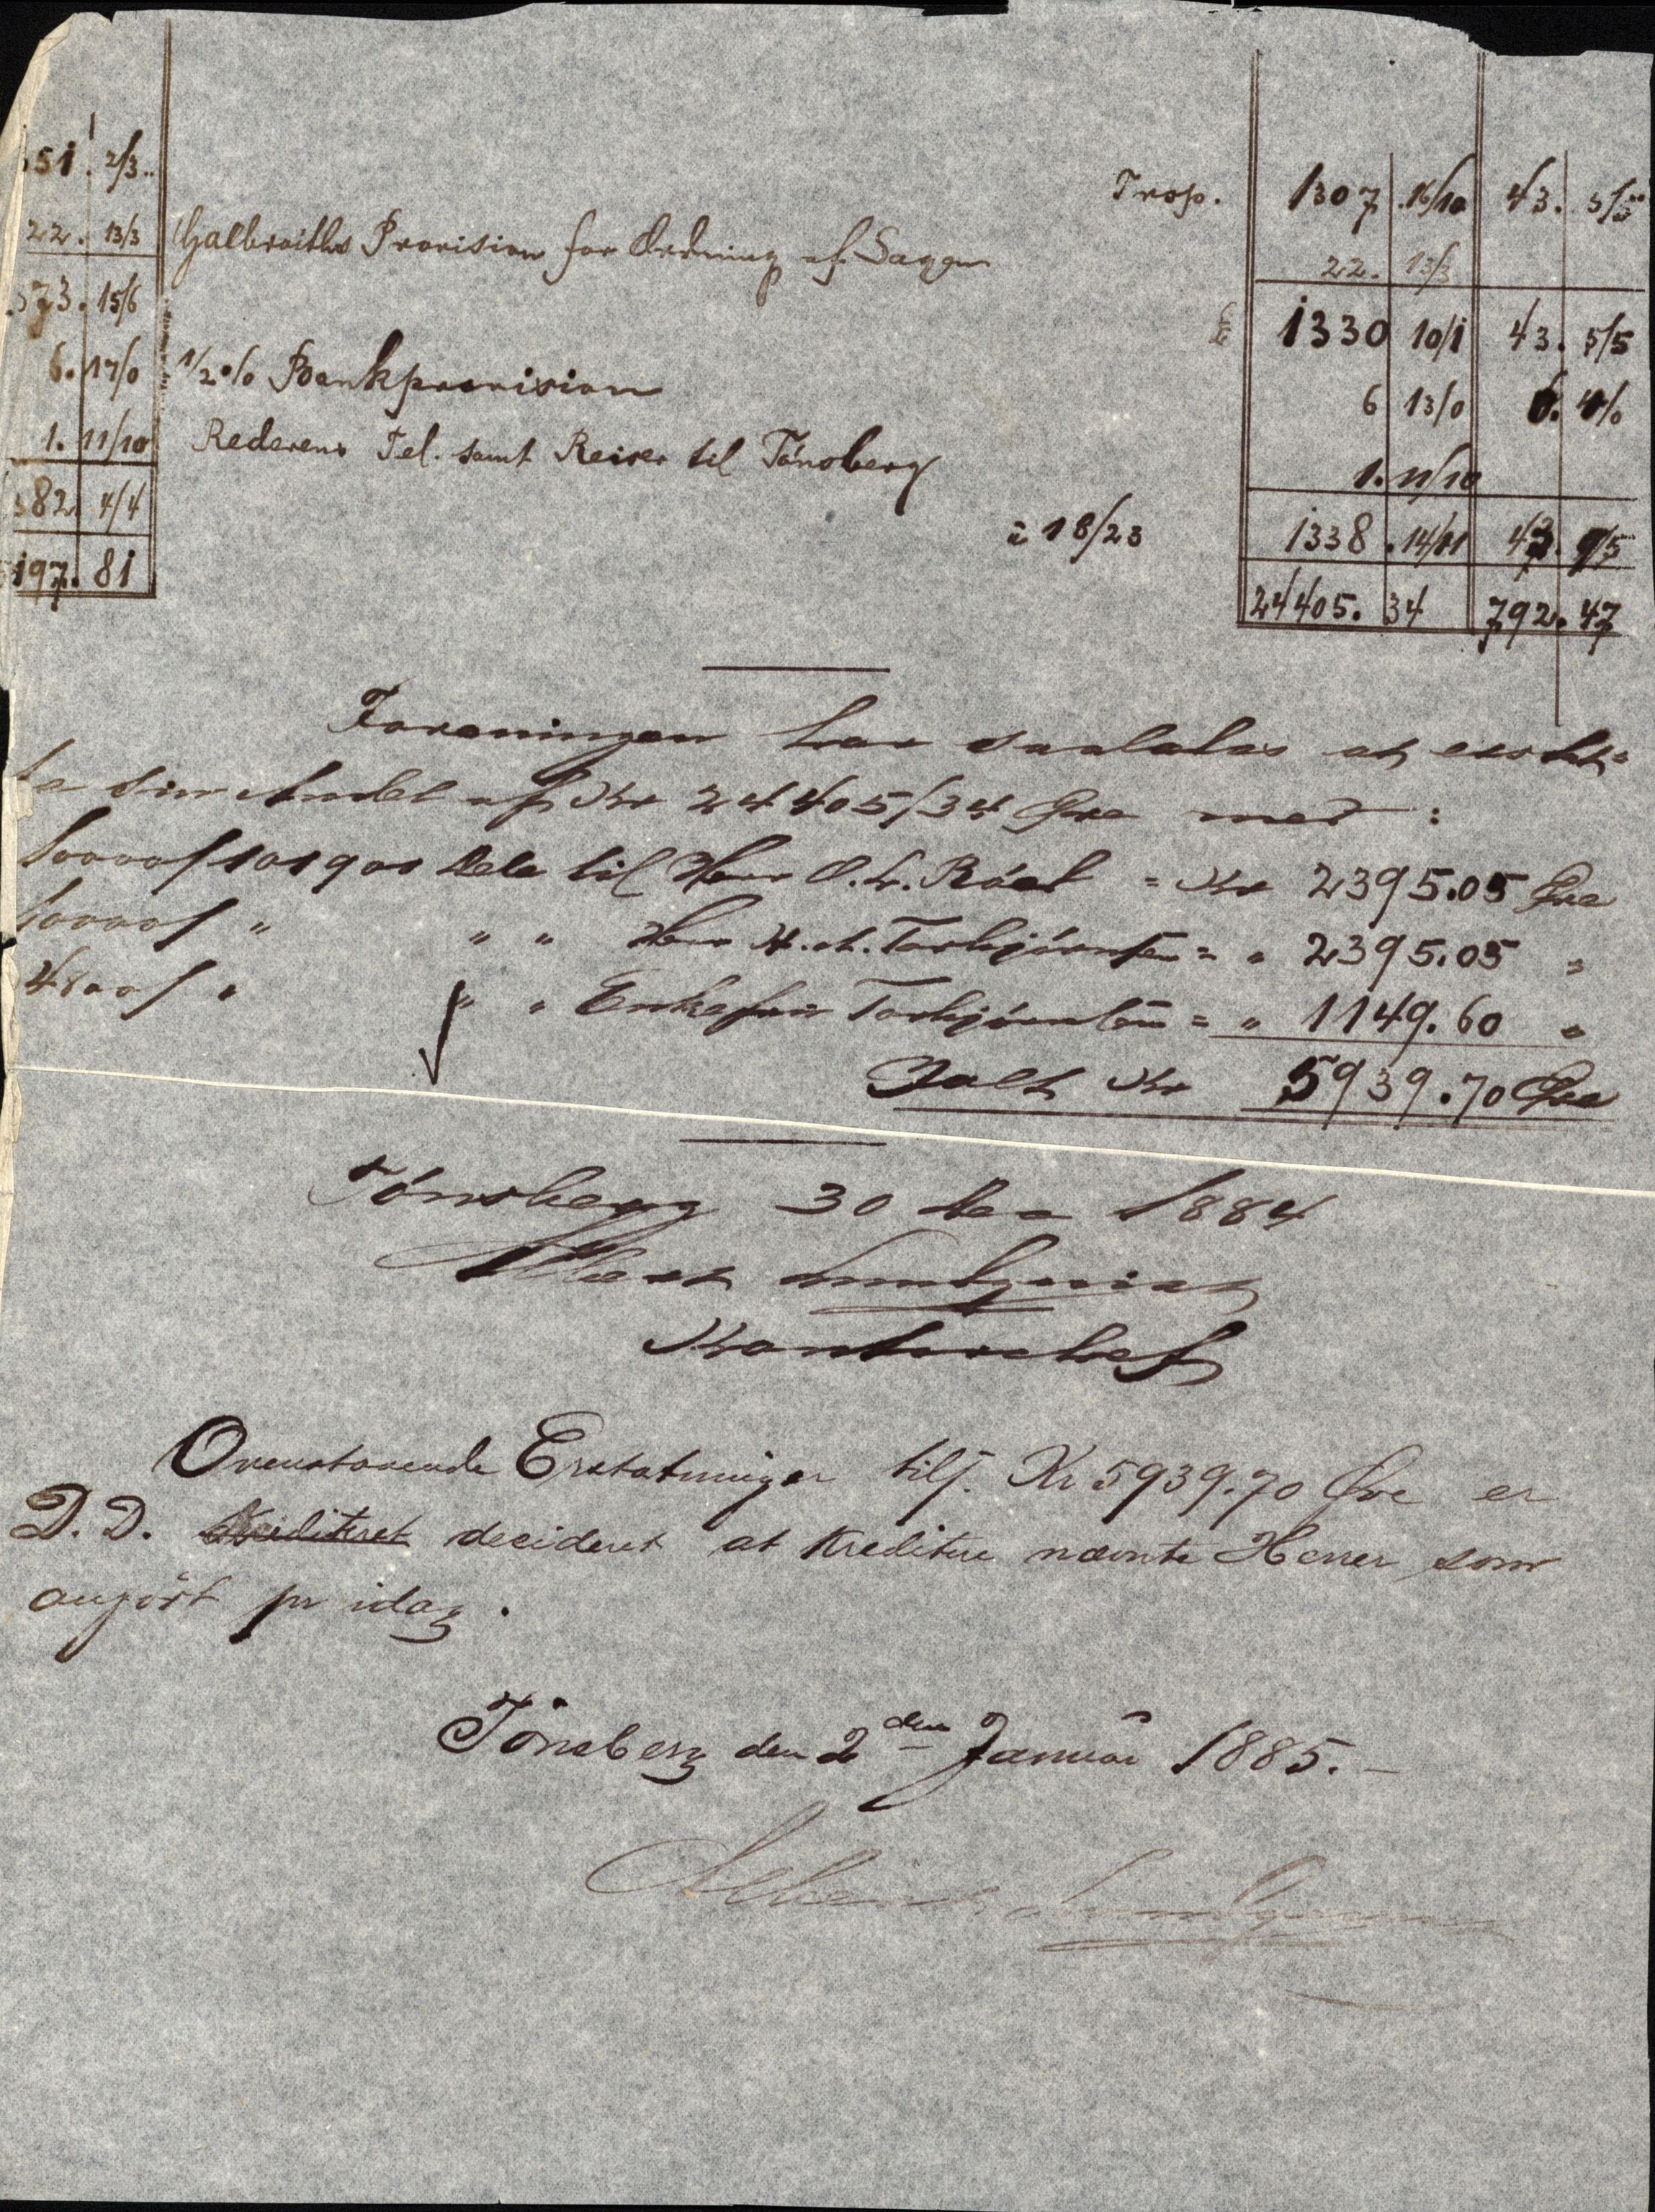 551. 2/3 Trop. 1307 .16/10 43. 5/5
22. 13/3 Galbraiths Provision for Ordning af Sagen 22. 13/3
573. 15/6 £ 1330 10/1 43. 5/5
6. 17/0 1/2 % Bankprovision 6 13/0 4/0
1. 11/10 Rederens Tel. samt Reiser til Tönsberg 1. 11/10
582 4/4 à 18/23 1338 .14/11 43. 9/5
197. 81 24405. 34 792. 47
Foreningen har saaledes at erstat-
te sin Andel af Kr 24405/34 Øre med :
10000/101900 Dele til Herr O. L. Röed = Kr 2395.05 Øre
10000/ " " " Herr H. A. Torbjörnsen = " 2395.05 "
4800/ " " " Enkefru Torbjörnsen = " 1149.60 "
Ialt Kr 5939.70 Øre
Tönsberg 30 Dec 1884
Albert Lundquist
Kontorchef
Ovenstaaende Erstatninger tils. Kr 5939.70 Øre er
D. D. Krediteret decideret at Kreditere nævnte Herrer som
anfört pr idag.
Tönsberg den 2den Januar 1885.-
Albert Lundquist